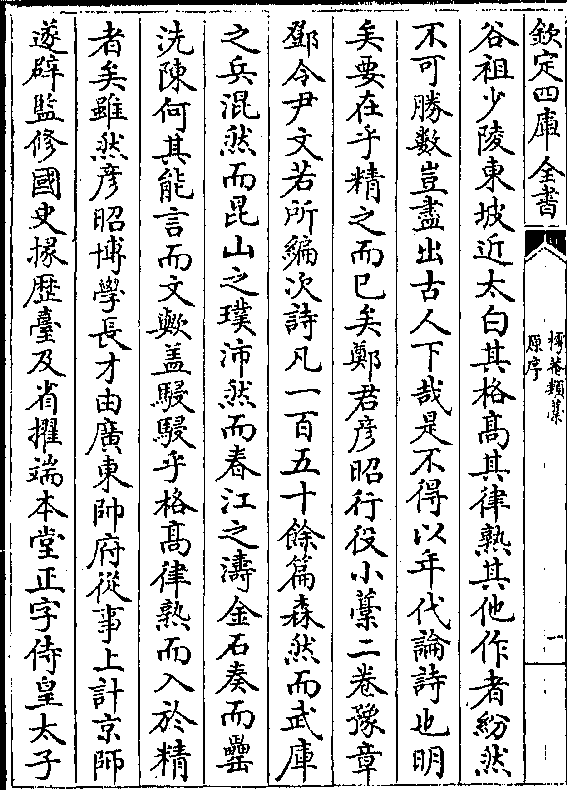 欽定四庫全書
樗菴類藁
原序
一
谷祖少陵東坡近太白其格髙其律熟其他作者紛然
不可勝數豈盡出古人下哉是不得以年代論詩也明
矣要在乎精之而已矣鄭君彥昭行役小藁二卷豫章
鄧令尹文若所編次詩凡一百五十餘篇森然而武庫
之兵混然而昆山之璞沛然而春江之濤金石奏而罍
洗陳何其能言而文歟盖駸駸乎格髙律熟而入於精
者矣雖然彥昭博學長才由廣東帥府從事上計京師
遂辟監修國史掾歴臺及省擢端本堂正字侍皇太子